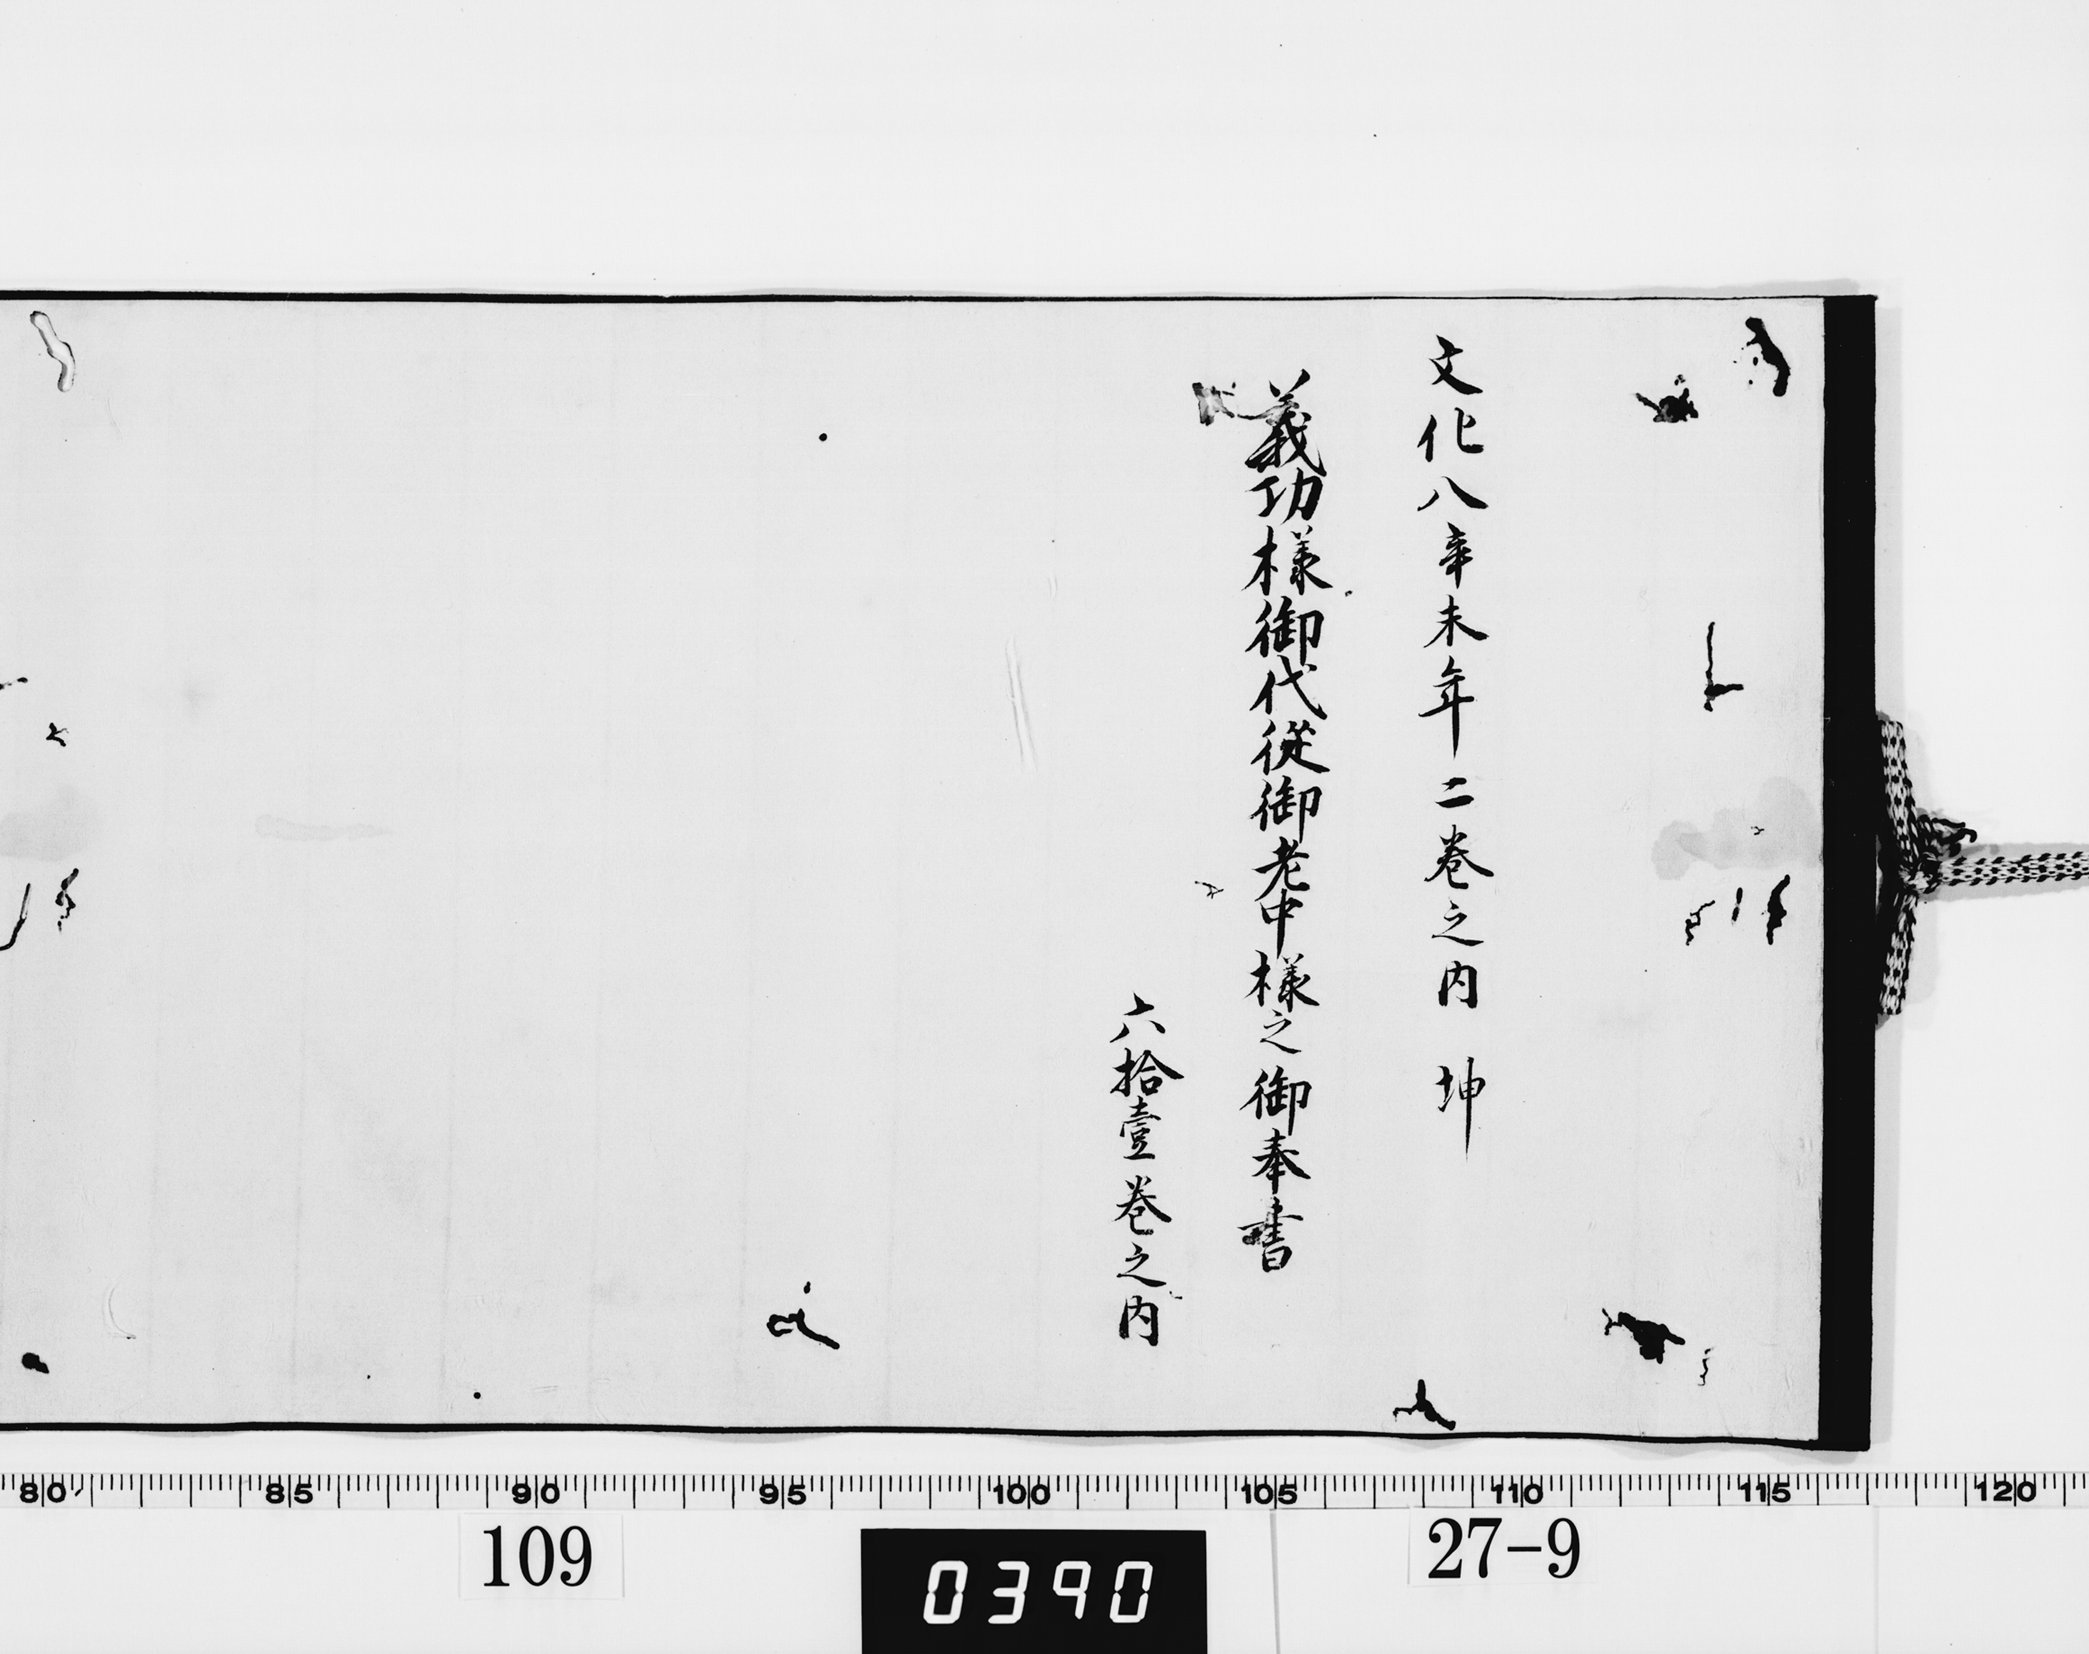 文化八辛未年二巻之内　坤
義功様御代従御老中様之御奉書
六拾壹巻之内
80 85 90 95 100 105 110 115 120
109
0390
27-9